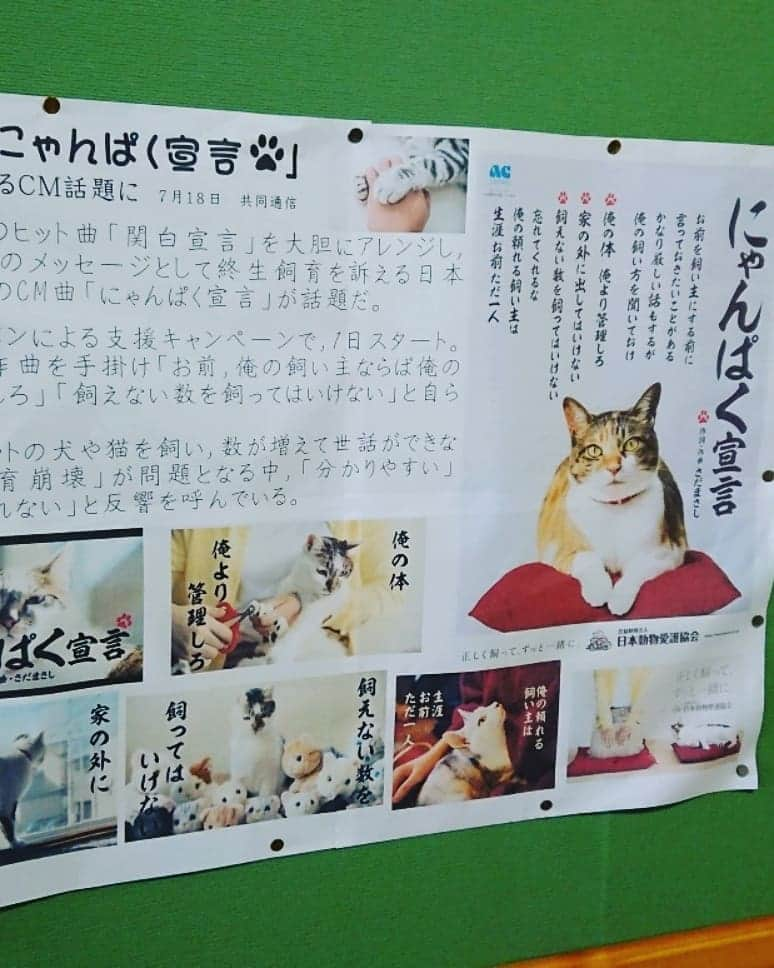 にゃんぱく宣言」
るCM話題に 7月18日 共同通信
のヒット曲「関白宣言」を大胆にアレンジし,
のメッセージとして終生飼育を訴える日本
のCM曲「にゃんぱく宣言」が話題だ。
ンによる支援キャンペーンで,1日スタート。
作曲を手掛け「お前,俺の飼い主ならば俺の
しろ」「飼えない数を飼ってはいけない」と自ら
ットの犬や猫を飼い,数が増えて世話ができな
育崩壊」が問題となる中,「分かりやすい」
れない」と反響を呼んでいる。
ac
にゃんぱく宣言
作詞・作曲 さだまさし
お前を飼い主にする前に
言っておきたいことがある
かなり厳しい話もするが
俺の飼い方を聞いておけ
俺の体 俺より管理しろ
家の外に出してはいけない
飼えない数を飼ってはいけない
忘れてくれるな
俺の頼れる飼い主は
生涯お前ただ一人
正しく飼って、ずっと一緒に。
公益財団法人
日本動物愛護協会
ぱく宣言
・さだまさし
俺の体
俺より
管理しろ
家の外に
飼えない数を
飼っては
いけな
俺の頼れる
飼い主は
生涯
お前
ただ一人
正しく飼って、
ずっと一緒に。
日本動物愛護協会